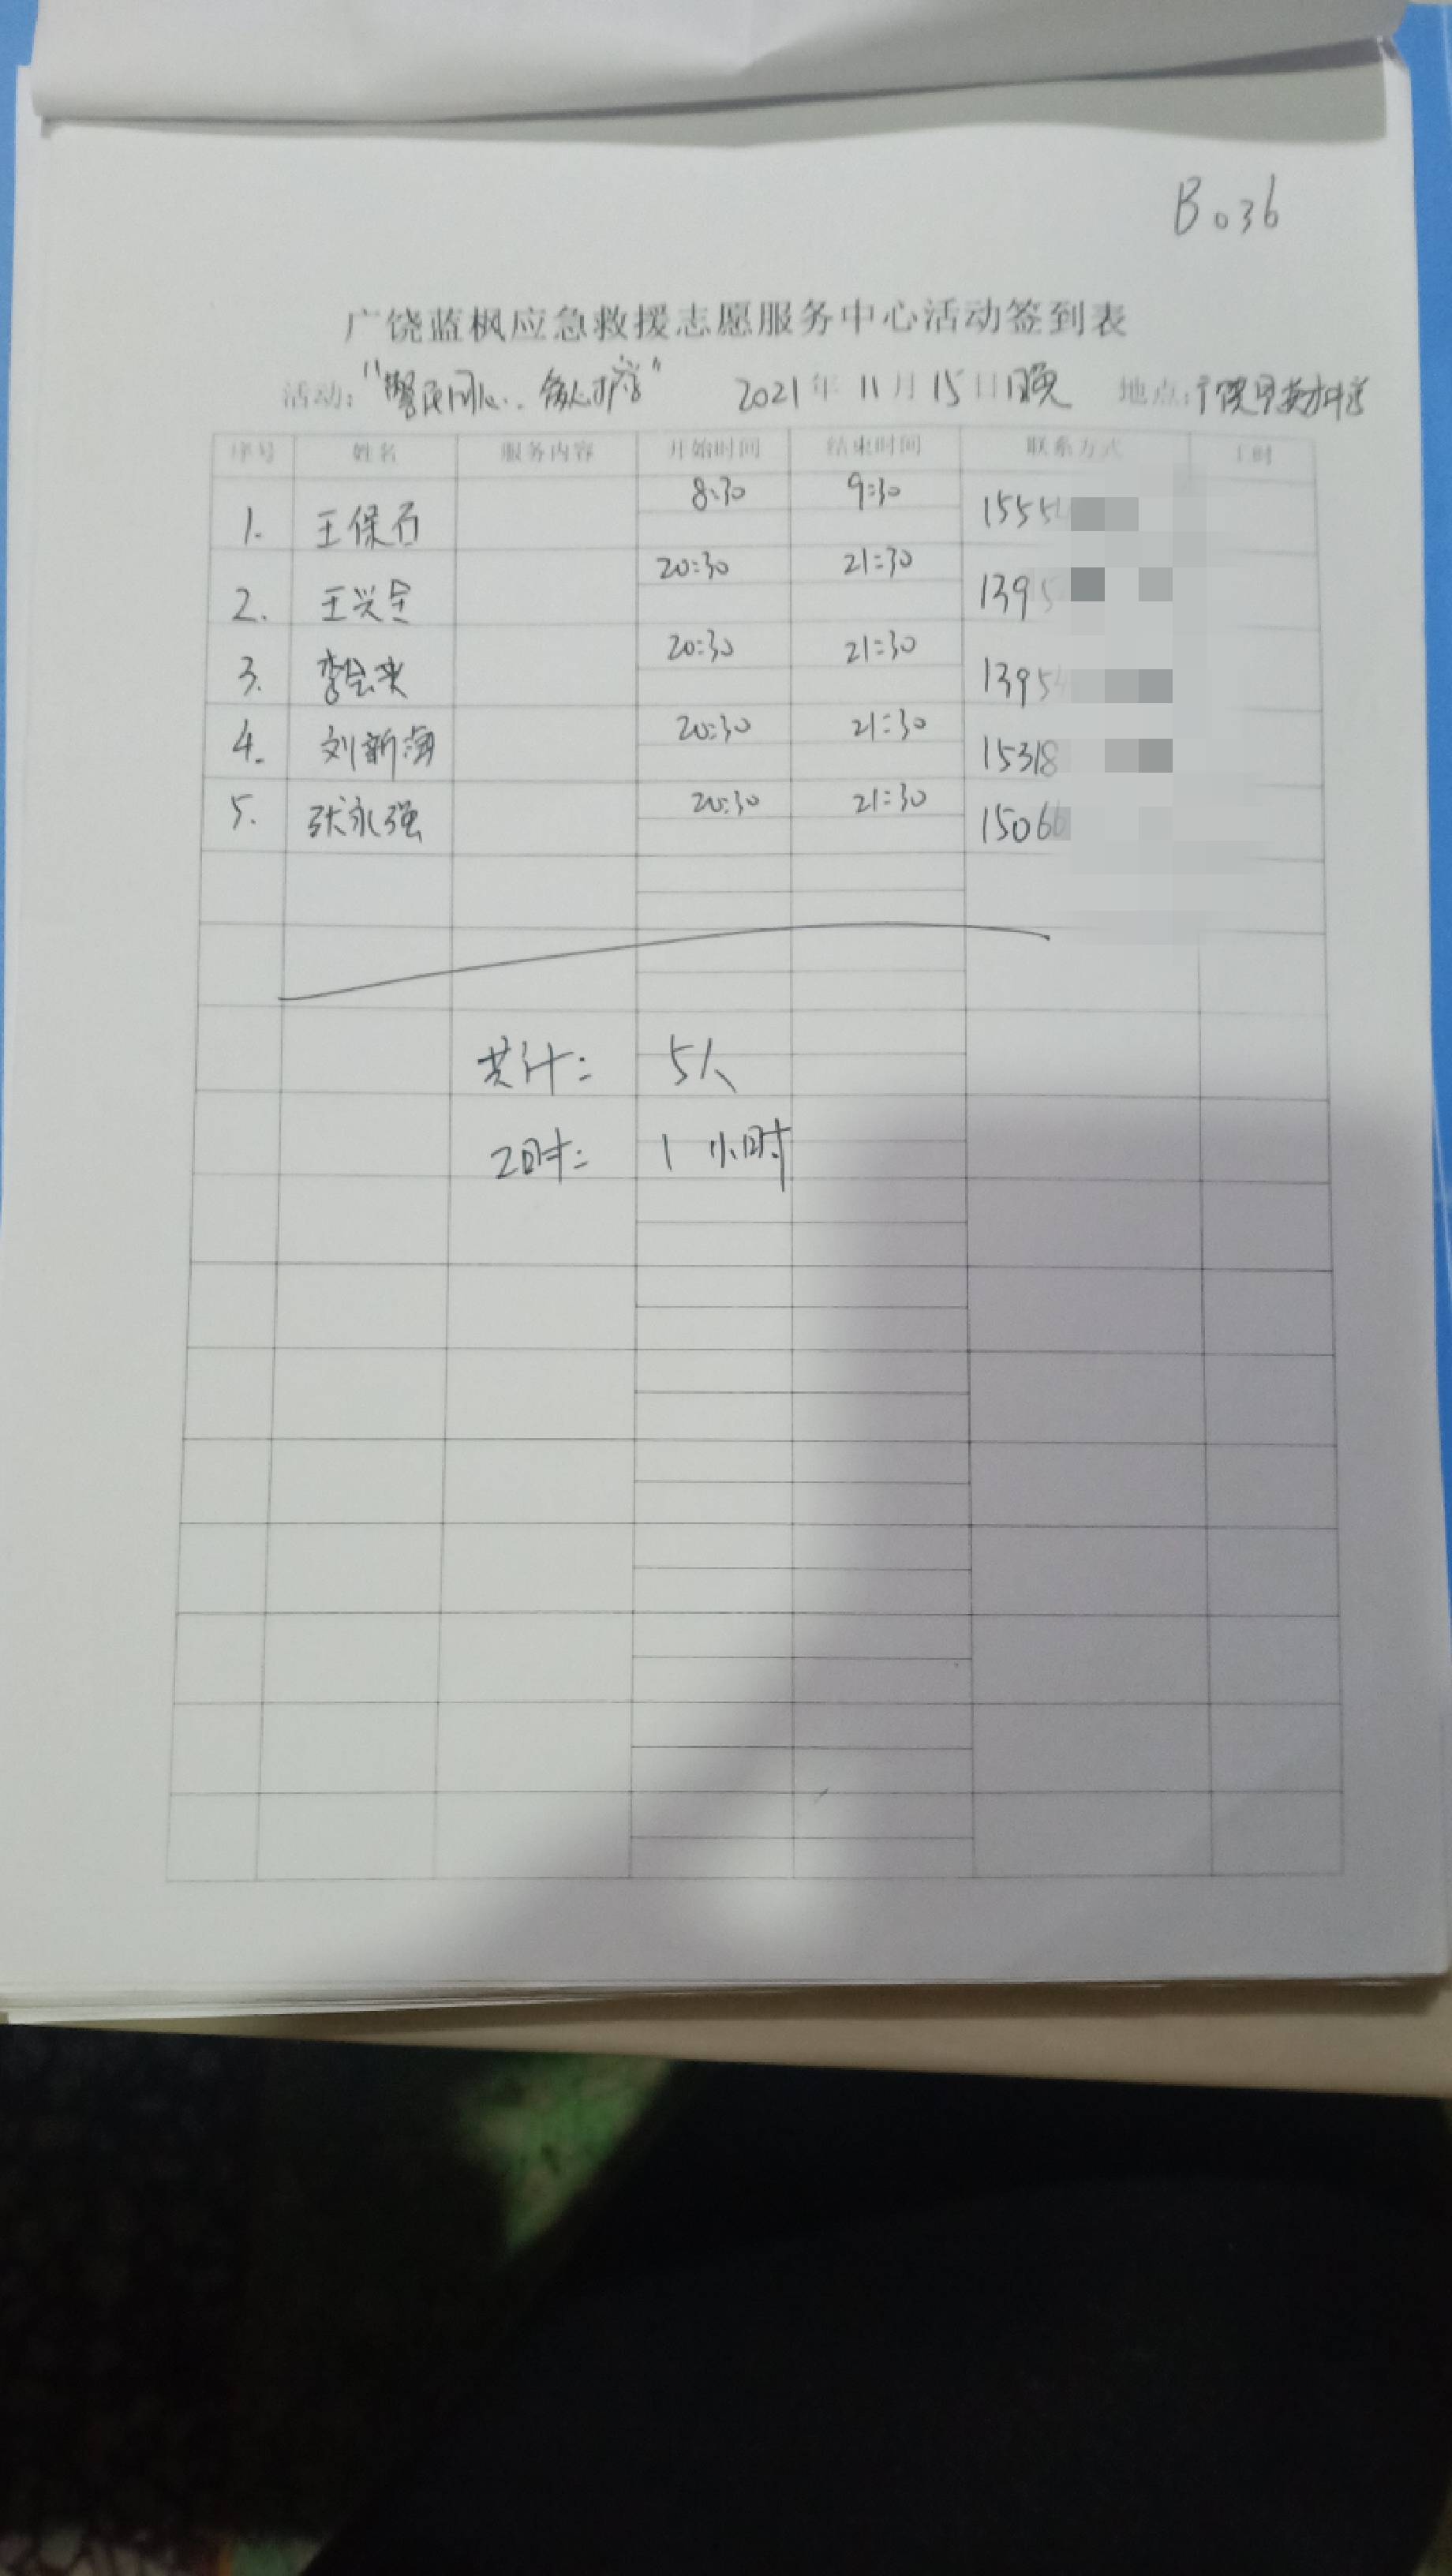 B036
广饶蓝枫应急救援志愿服务中心活动签到表
活动：“警民同心..护学” 2021年11月15日晚 地点：广饶
序号 姓名 服务内容 开始时间 结束时间 联系方式 工时
1. 王保石 8:30 9:30 1555
2. 王兴全 20:30 21:30 1395
3. 李 20:30 21:30 1395
4. 刘新海 20:30 21:30 15318
5. 张永强 20:30 21:30 1506
共计： 5人
工时： 1 小时